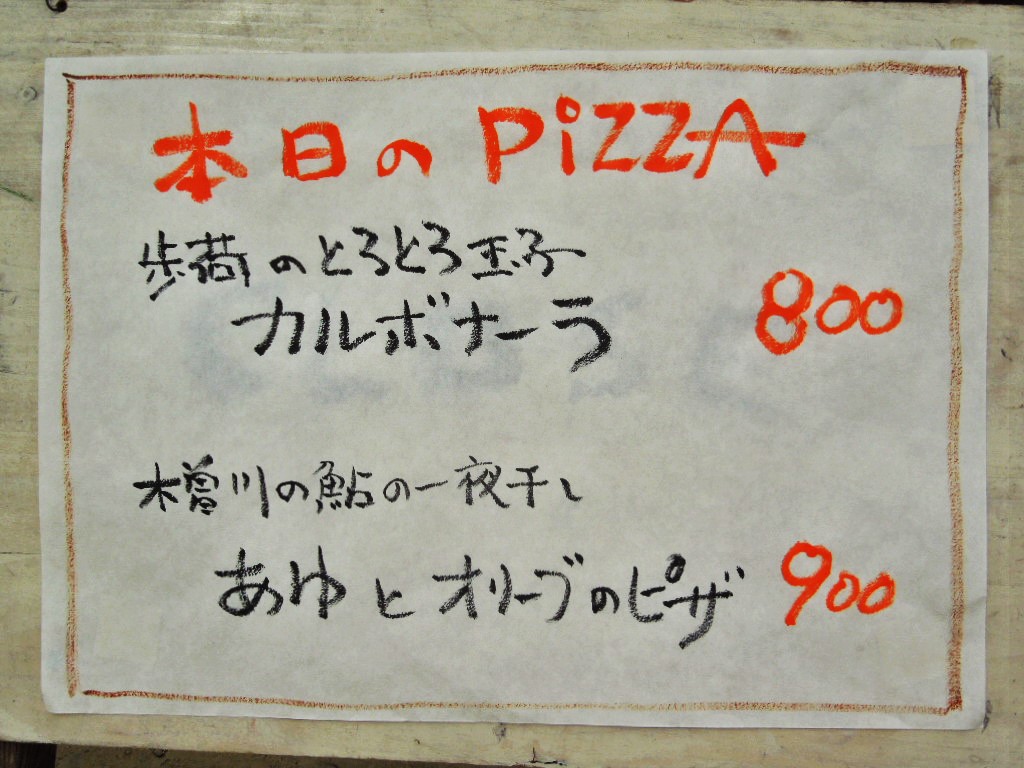 本日のPiZZA
歩荷のとろとろ玉子
カルボナーラ 800
木曽川の鮎の一夜干し
あゆとオリーブのピザ 900